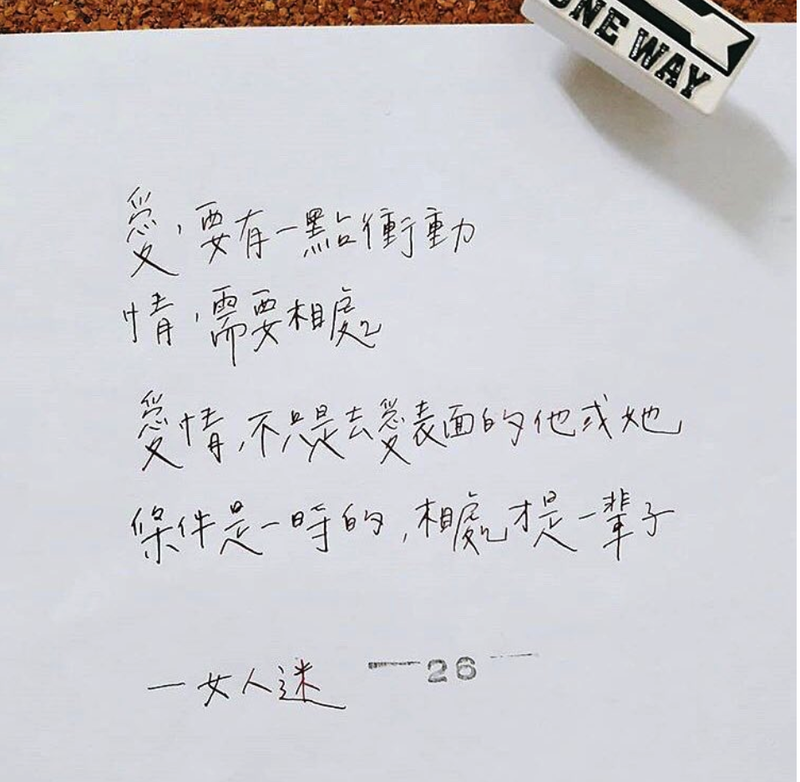 ONE WAY
愛,要有一點衝動
情,需要相處
愛情,不只是去愛表面的他或她
條件是一時的,相處才是一輩子
—女人迷
26